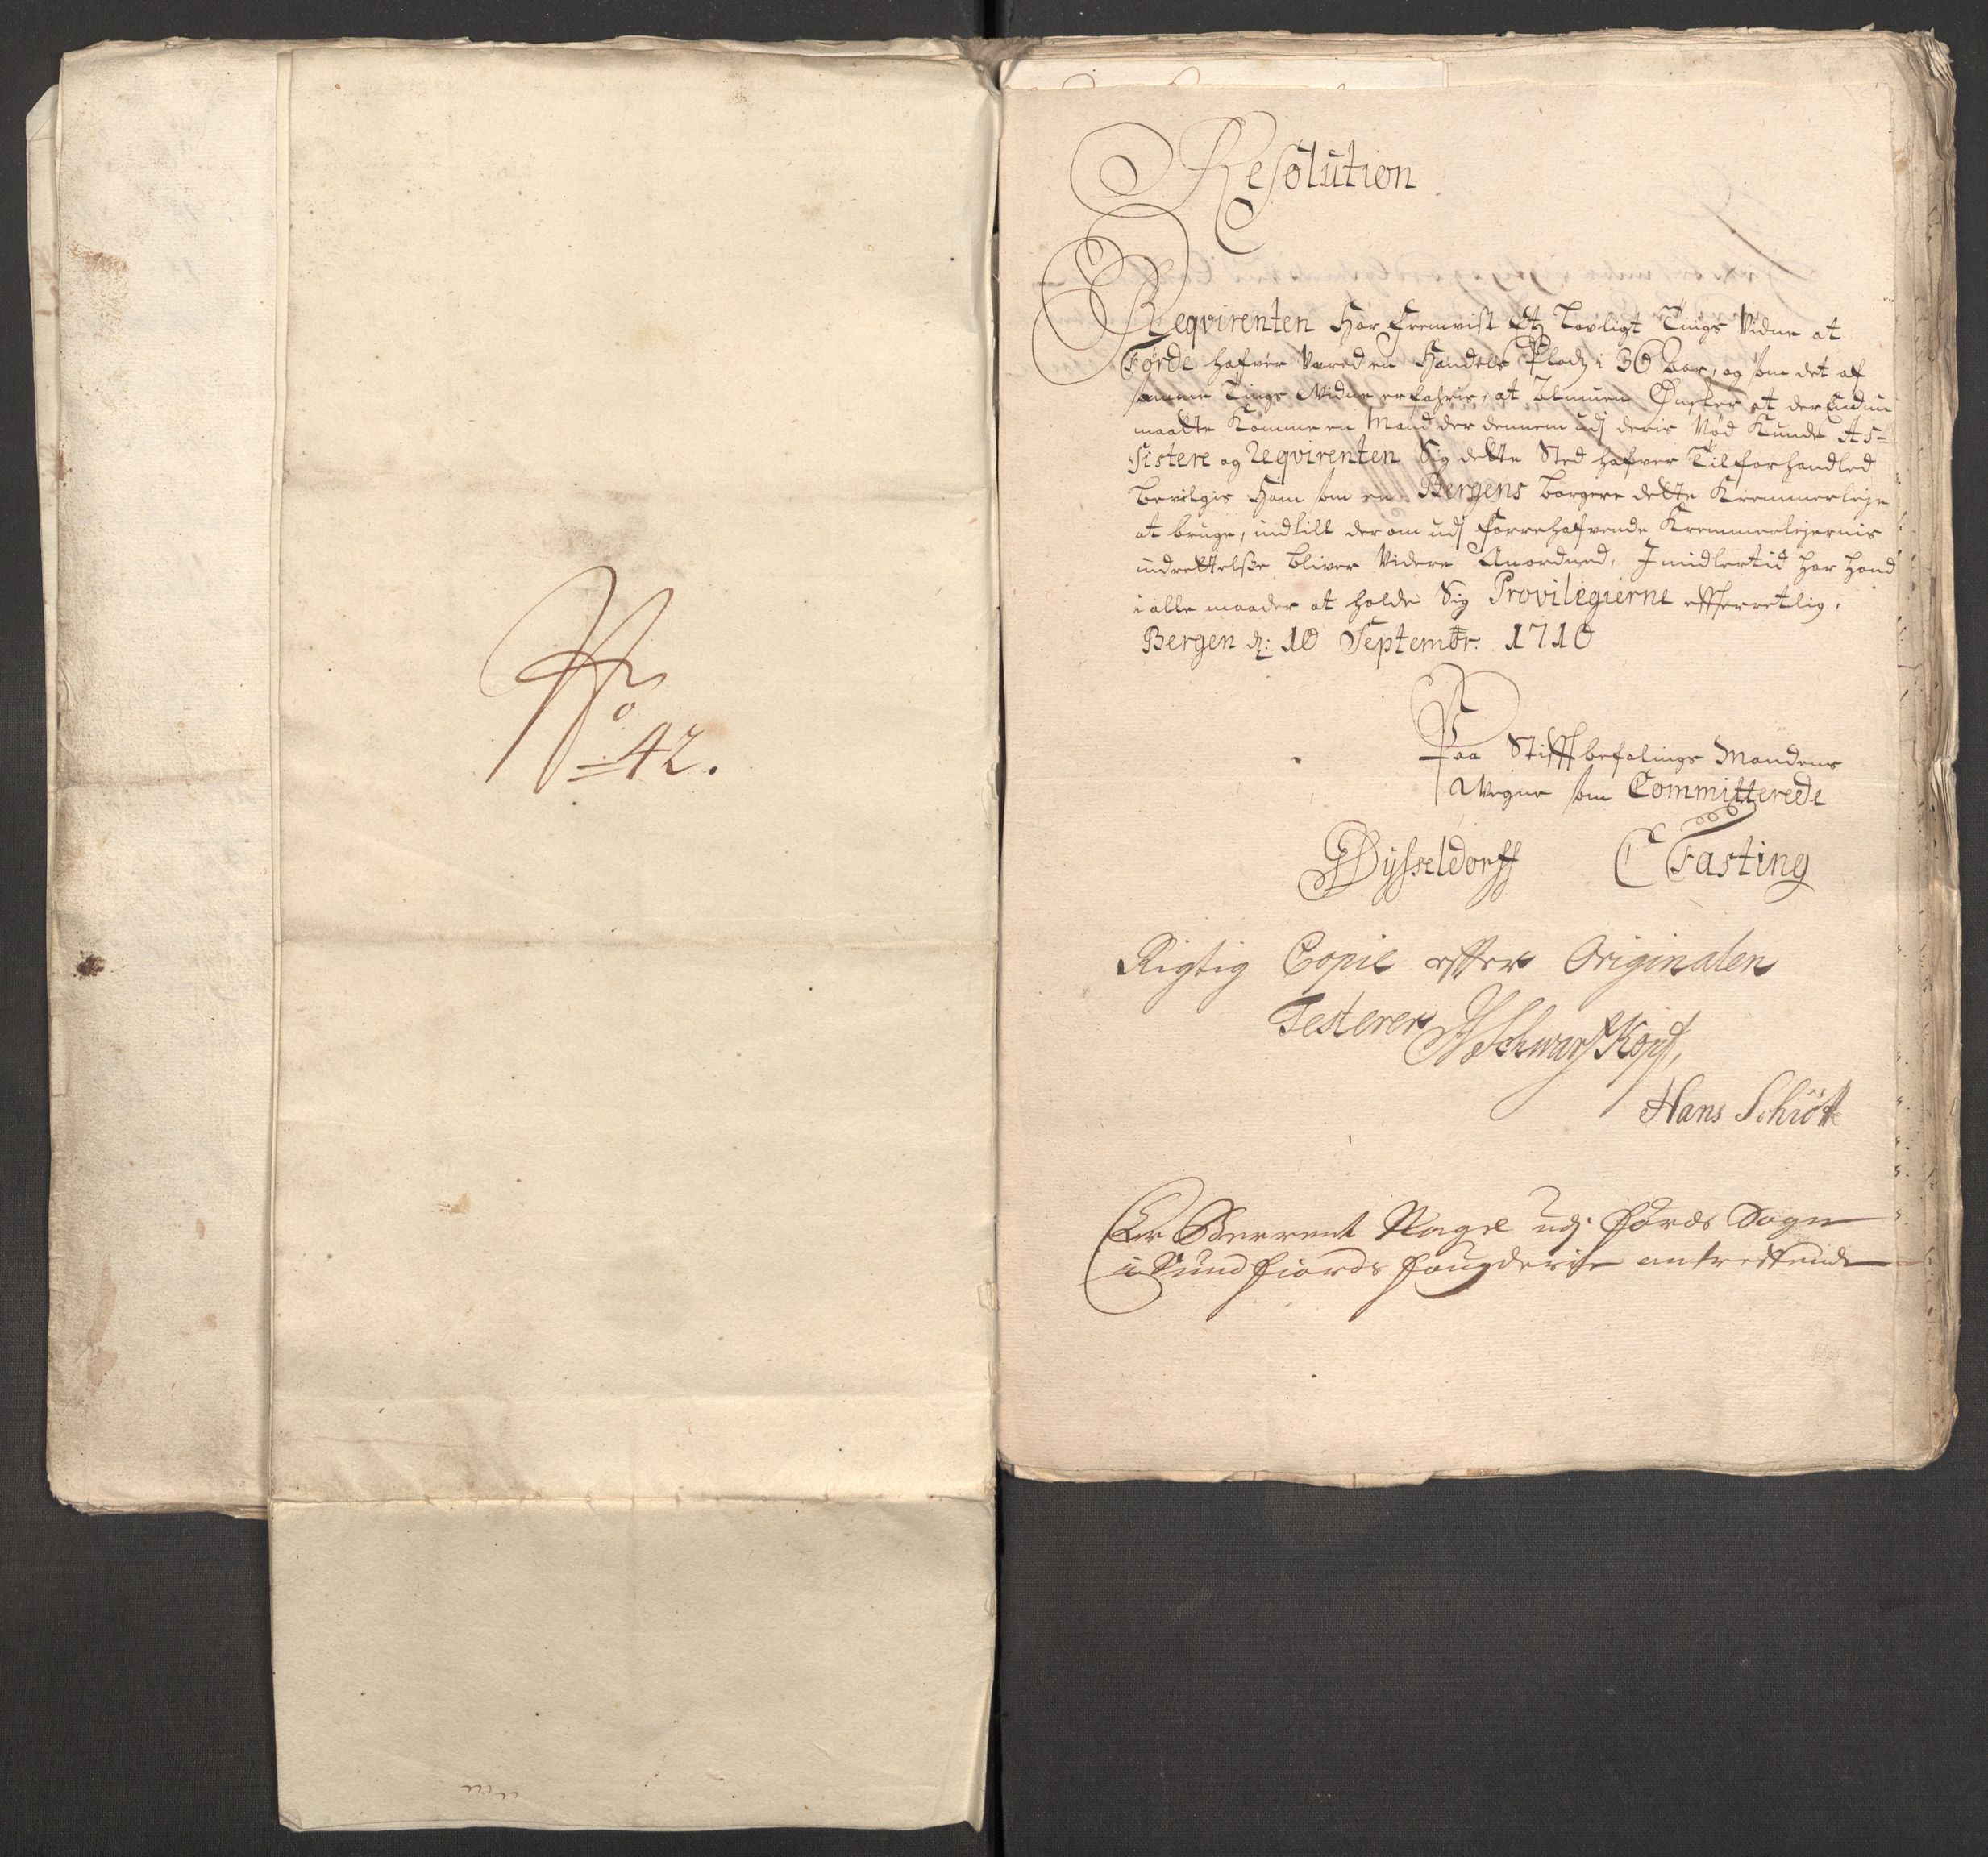 No
42.
Resolution
Reqvirenten Har Fremvist Et Lovligt Tings Vidne at
Førde hafver Vered en Handels Pladz i 30 Aar, og som det af
samme Tings Widne erfahris, at Almuen Ønsker at der Endnu
maatte Komme en Mand der dennem udj deris Nød Kunde As=
sistere og Reqvirenten Sig dette Sted hafver Tilforhandled
bevilgis Ham som en Bergens borgere dette Kremmerleje
at bruge, indtill der om udj forrehafvende Kremmerlejernis
indrettelsse bliver Videre Anordned, Imidlertid har hand
i alle maader at holde Sig Provilegierne efterretlig,
Bergen d: 10 Septembr: 1710
Paa Stiftbefalings Mandens
Wegne som Committerede
GDÿsseldorff CFasting
Rigtig Copie efter Originalen
Testerer Schwartzkopf,
Hans Schiöt
Er Berrent Nagel udj Førde Sogn
i Sundfiords fougderie antreffende